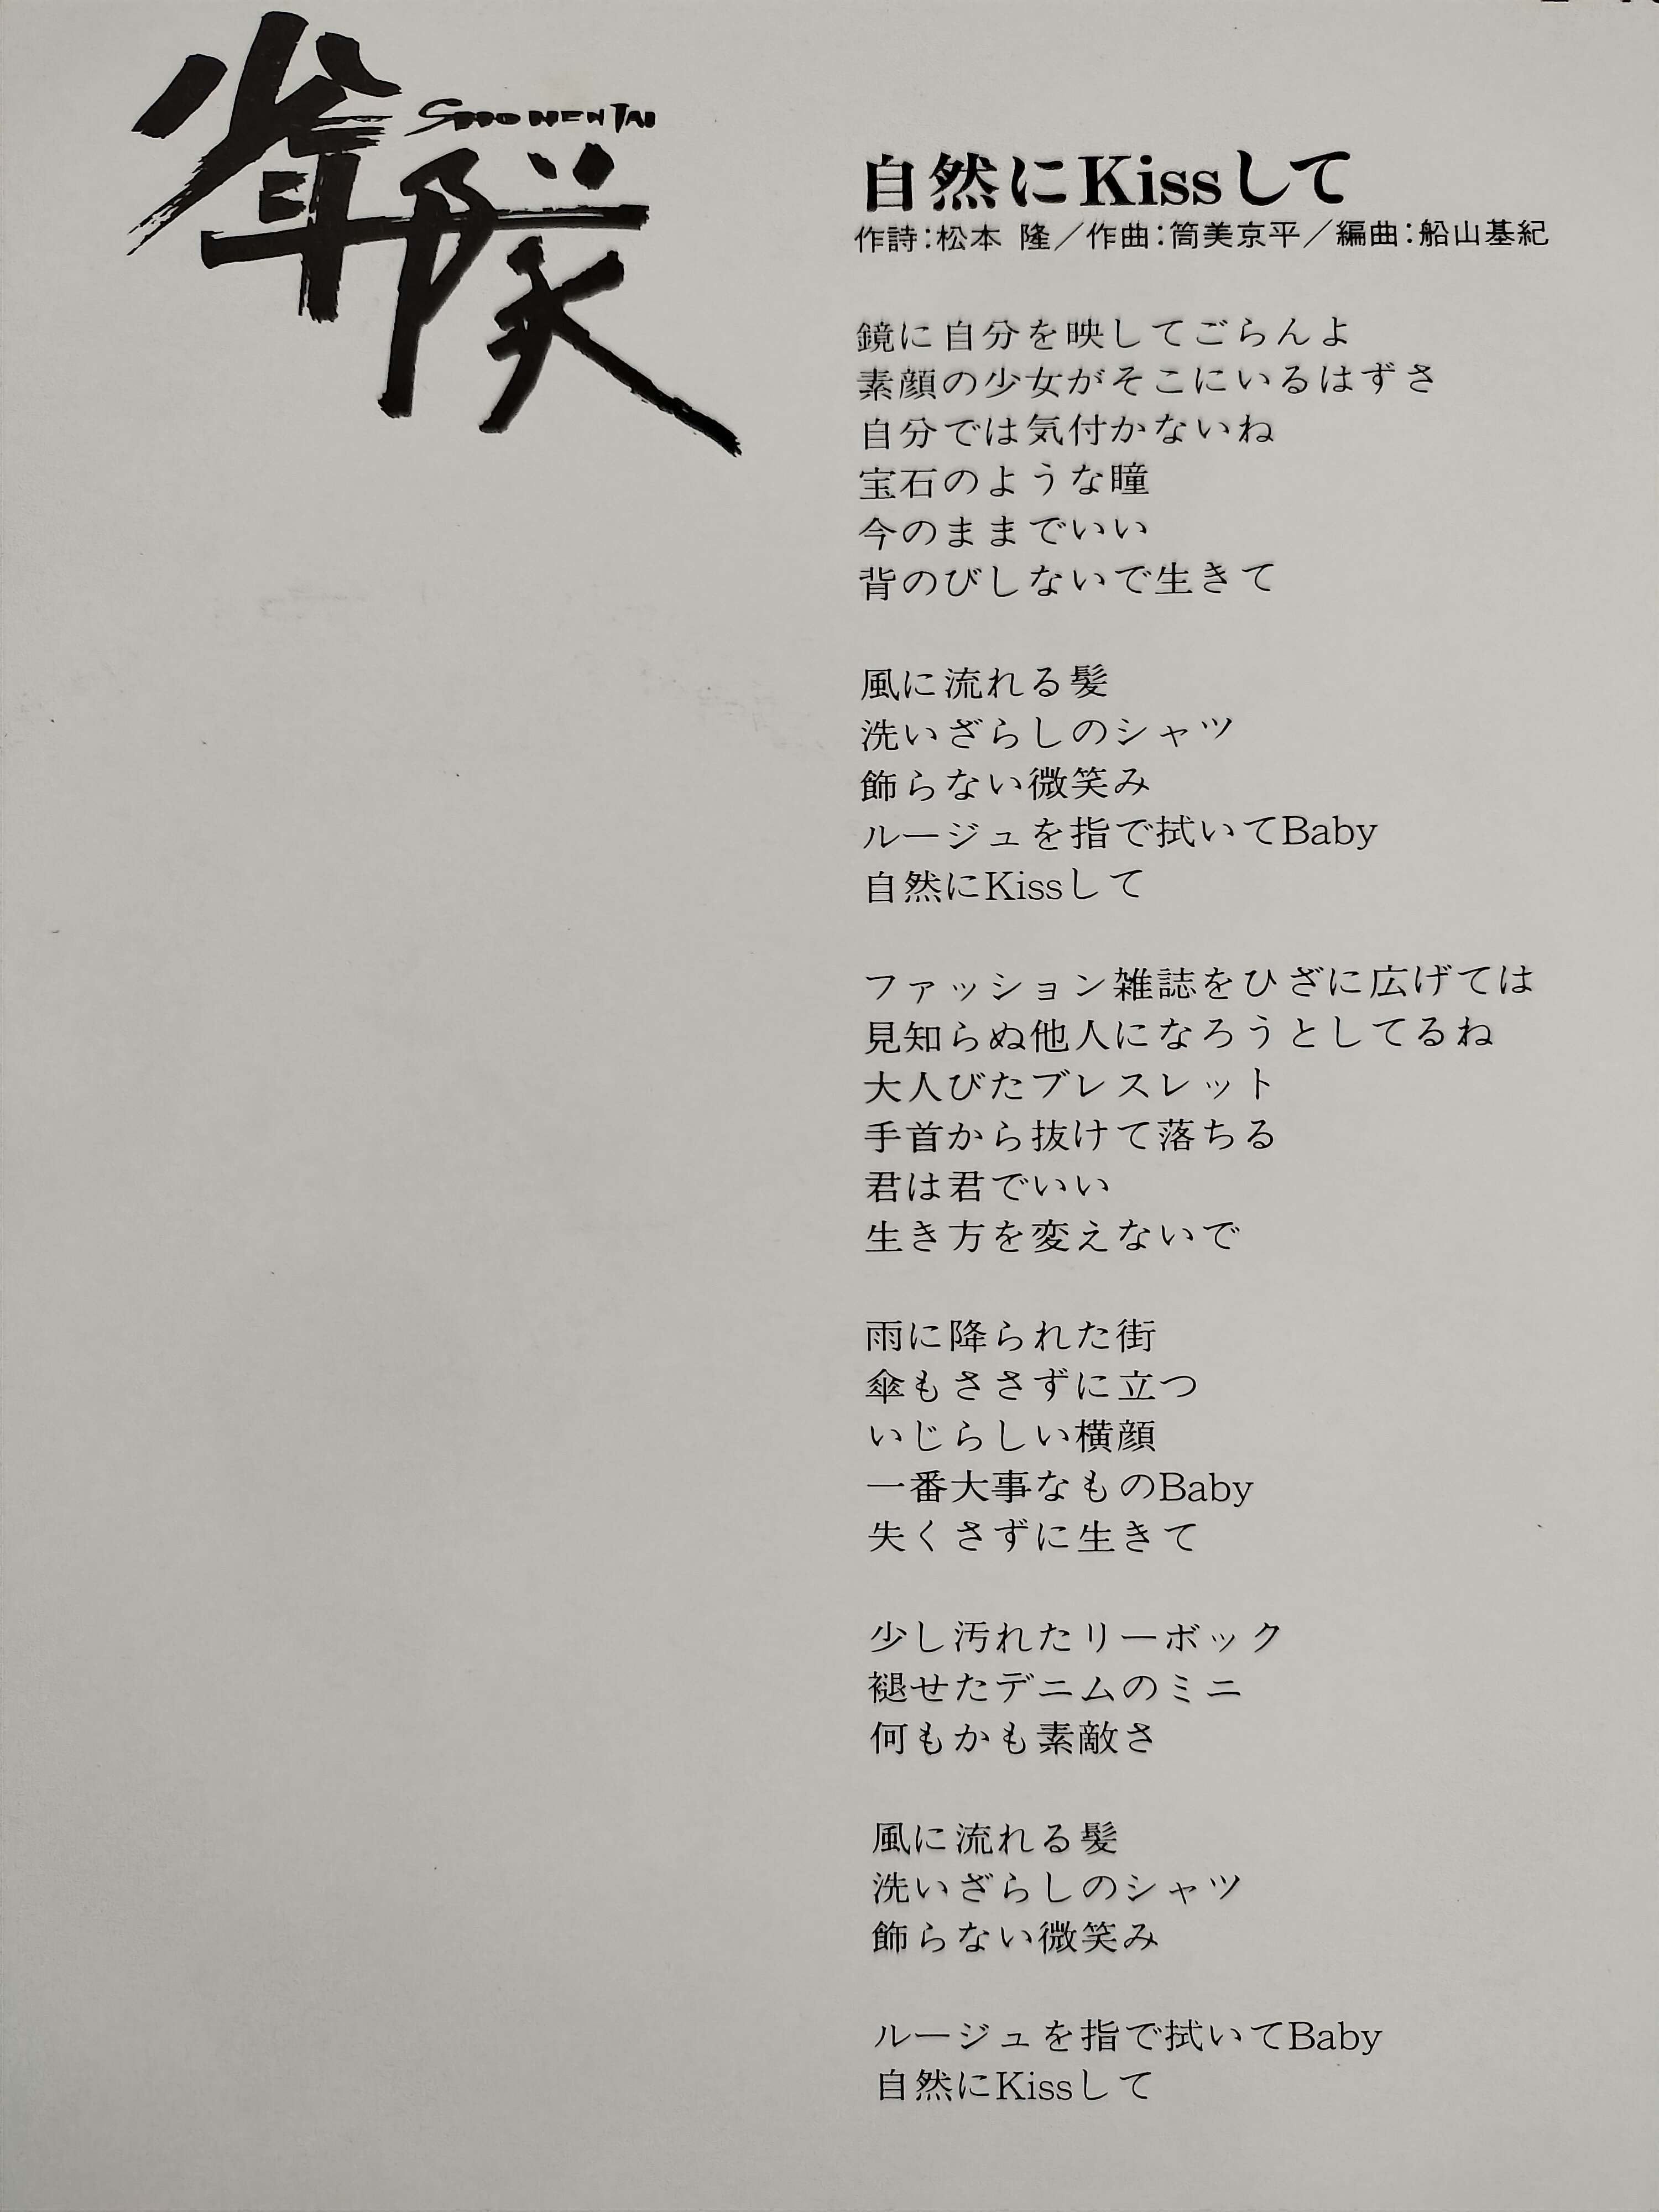 少年隊
SHONENTAI
自然にKissして
作詩:松本 隆/作曲:筒美京平/編曲:船山基紀
鏡に自分を映してごらんよ
素顔の少女がそこにいるはずさ
自分では気付かないね
宝石のような瞳
今のままでいい
背のびしないで生きて
風に流れる髪
洗いざらしのシャツ
飾らない微笑み
ルージュを指で拭いてBaby
自然にKissして
ファッション雑誌をひざに広げては
見知らぬ他人になろうとしてるね
大人びたブレスレット
手首から抜けて落ちる
君は君でいい
生き方を変えないで
雨に降られた街
傘もささずに立つ
いじらしい横顔
一番大事なものBaby
失くさずに生きて
少し汚れたリーボック
褪せたデニムのミニ
何もかも素敵さ
風に流れる髪
洗いざらしのシャツ
飾らない微笑み
ルージュを指で拭いてBaby
自然にKissして